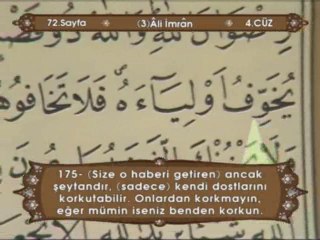 72.Sayfa (3)Âli İmrân 4.CÜZ
رِضْوَانَ اللّٰهِ وَاللّٰهُ ذُو
يُخَوِّفُ اَوْلِيَٓاءَهُ فَلَا تَخَافُوهُ
175- (Size o haberi getiren) ancak
şeytandır, (sadece) kendi dostlarını
korkutabilir. Onlardan korkmayın,
eğer mümin iseniz benden korkun.